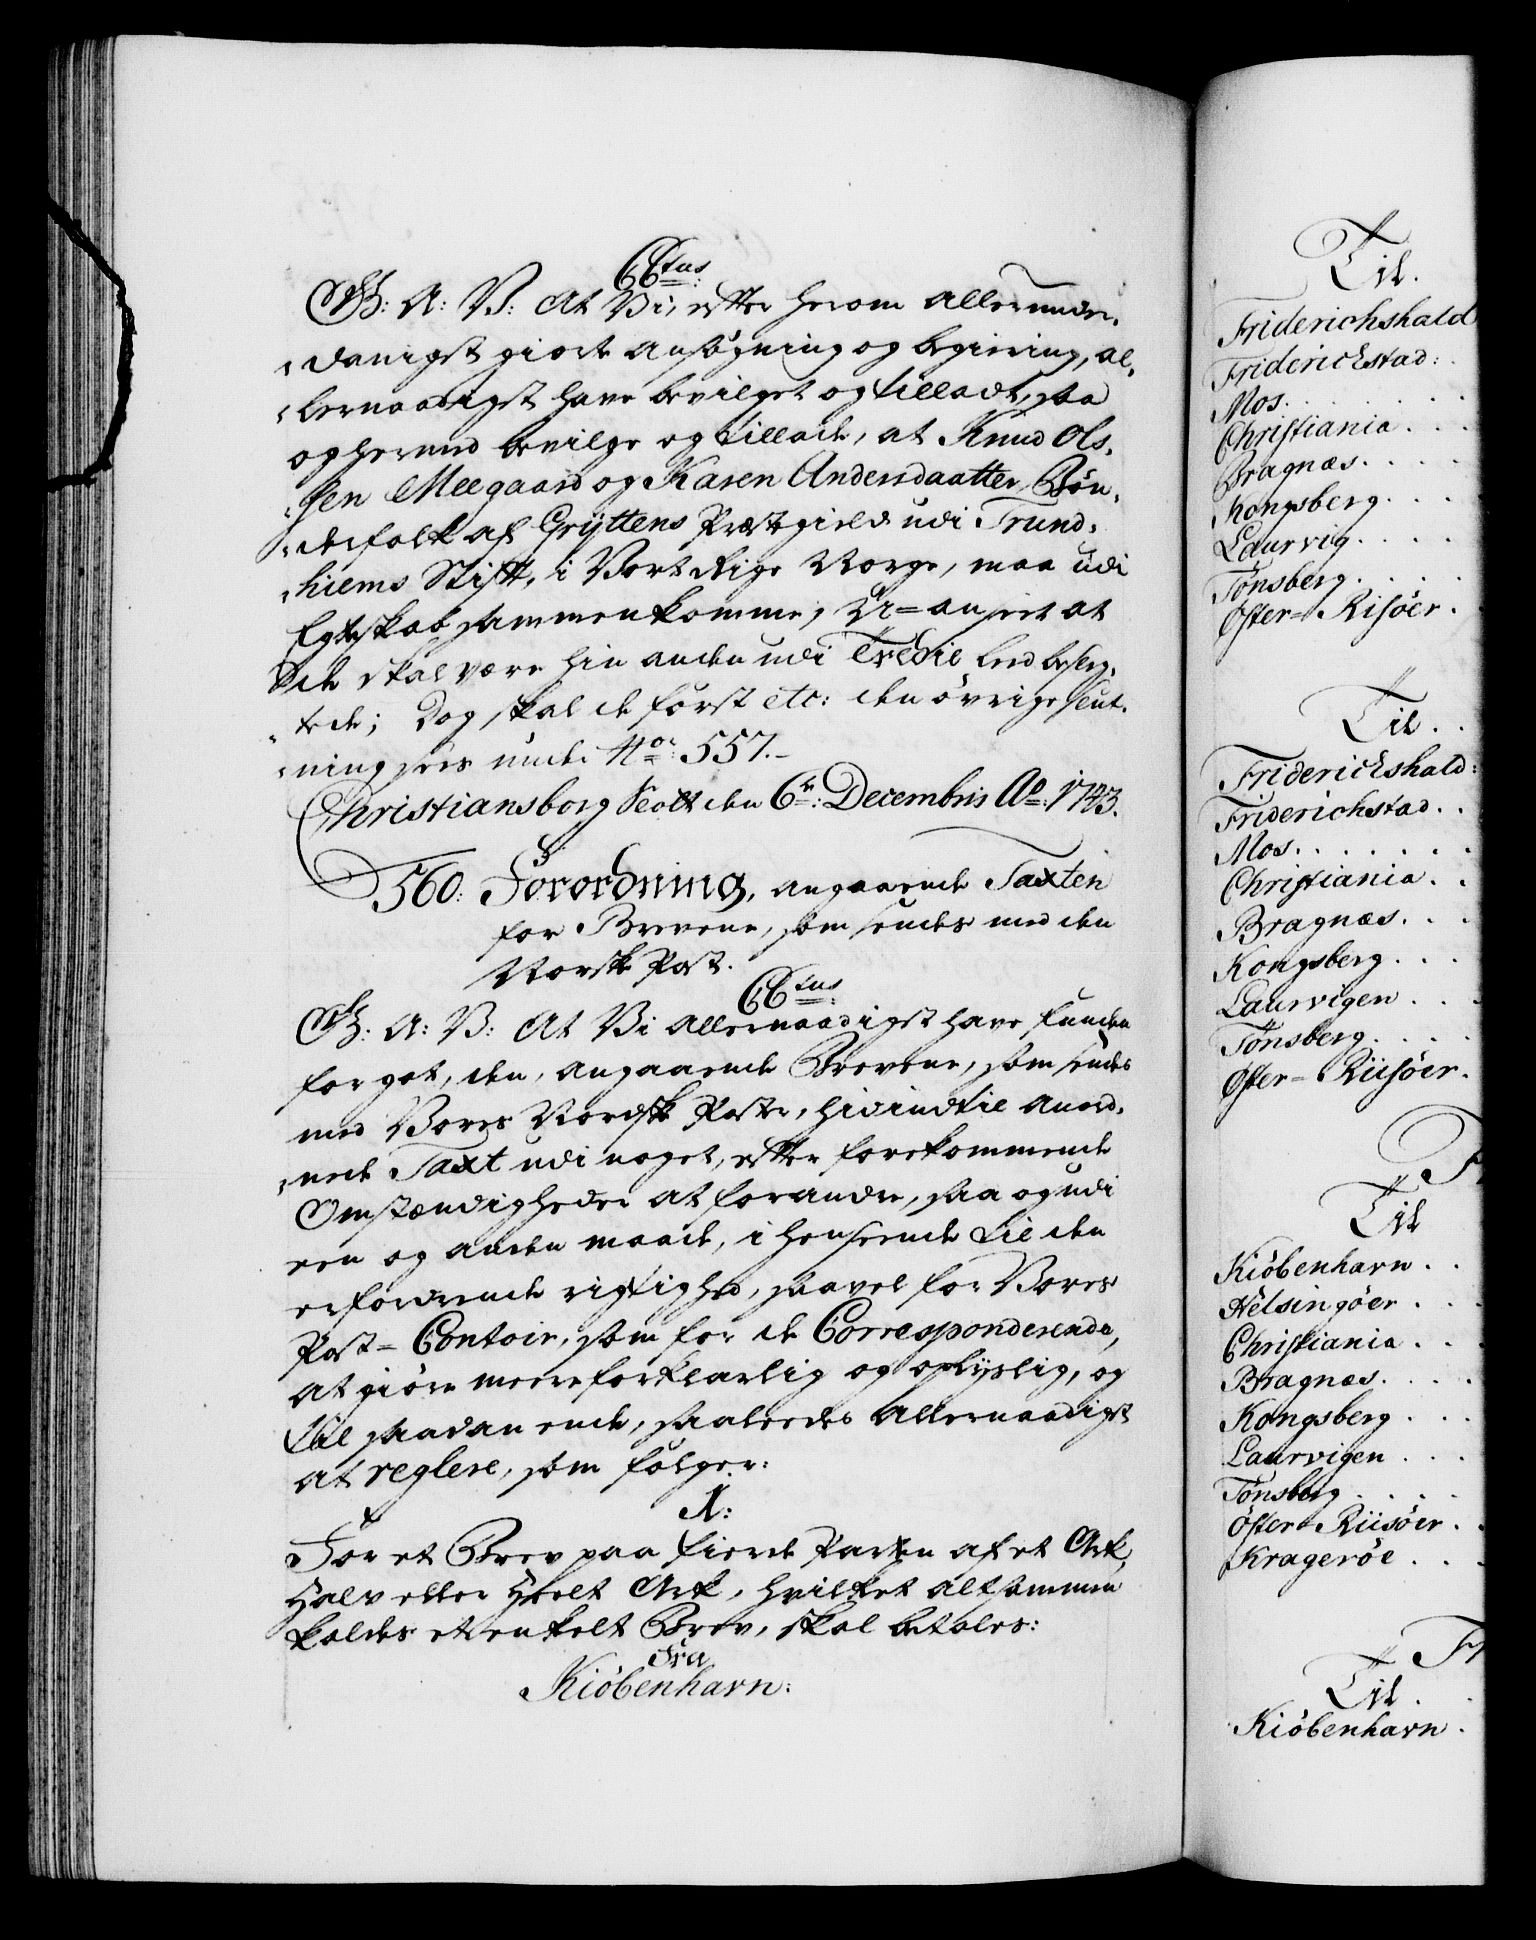 C6tus:
G: A: V: At Vi, efter herom allerunder-
danigst giorde ansøgning og begiering, al-
lernaadigst have bevilget og tilladt, saa
og hermed bevilge og tillade, at Knud Ols-
sen Meegaard og Karen Andersdaatter, Bøn-
derfolk af Gryttens Præstegield udi Trund-
hiems Stift, i Vort Rige Norge, maa udi
Egteskab sammenkomme, U-anseet at
de skal være hin anden udi Tredie Leed besleg-
tede; Dog skal de først etc: den øvrige slut-
ning sees under No: 557.-
Christiansborg Slott den 6te: Decembris Ao: 1743.
560: Forordning, angaaende Taxten
for Brevene, som sendes med den
Norske Post.
C6tus:
G: A: V: At Vi allernaadigst have funden
for got, den, angaaende Brevene, som sendes
med Vores Nordske Poster, hidindtil anord-
nede Taxt udi noget, efter forekommende
Omstændigheder at forandre, saa og udi
een og anden maade, i henseende til den
erfordrende rigtighed, saavel for Vores
Post-Contoir, som for de Corresponderende,
at giøre meere forklarlig og oplyslig, og
til saadan ende, saaledes allernaadigst
at reglere, som følger:
1:
For et Brev paa fierde Parten af et Ark,
Halv eller Heelt Ark, hvilket altsammen
kaldes et enkelt Brev, skal betales:
Fra
Kiøbenhavn:
Til.
Friderichshald
Friderichstad:
Mos. . . . . . .
Christiania . . .
Bragnæs. . . . .
Kongsberg. . . .
Laurvig. . . . .
Tønsberg. . . . .
Øster-Risøer .
Til . .
Friderichshald:
Friderichstad. .
Mos. . . . . . .
Christiania . .
Bragnæs. . .
Kongsberg. . .
Laurvigen . . .
Tønsberg. . . .
Øster-Riisøer.
F
Til
Kiøbenhavn . .
Helsingøer . . .
Christiania . . .
Bragnæs. . . .
Kongsberg . . .
Laurvigen . . .
Tønsberg . . . .
Øster-Riisøer . .
Kragerøe . . .
Fr
Til .
Kiøbenhavn .